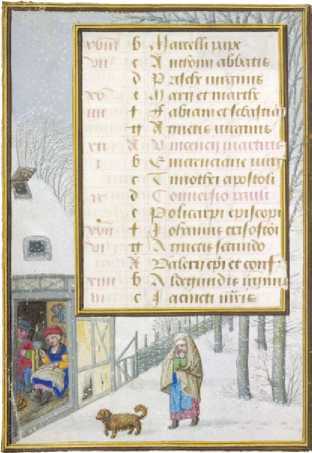 b Marcelli pape
vii c Antonii abbatis
d Prisce virginis
xv e Marii et marthe
iiii f Fabiani et sebastiani
g Agnetis virginis
xii A Vincencii martiris
i b Emerenciane virg
c Timothei apostoli
d Conversio pauli
e Policarpi episcopi
xvii f Iohannis crisostomi
vi g Agnetis secundo
A Valerii epi et conf
b Aldegundis virginis
iii c mris